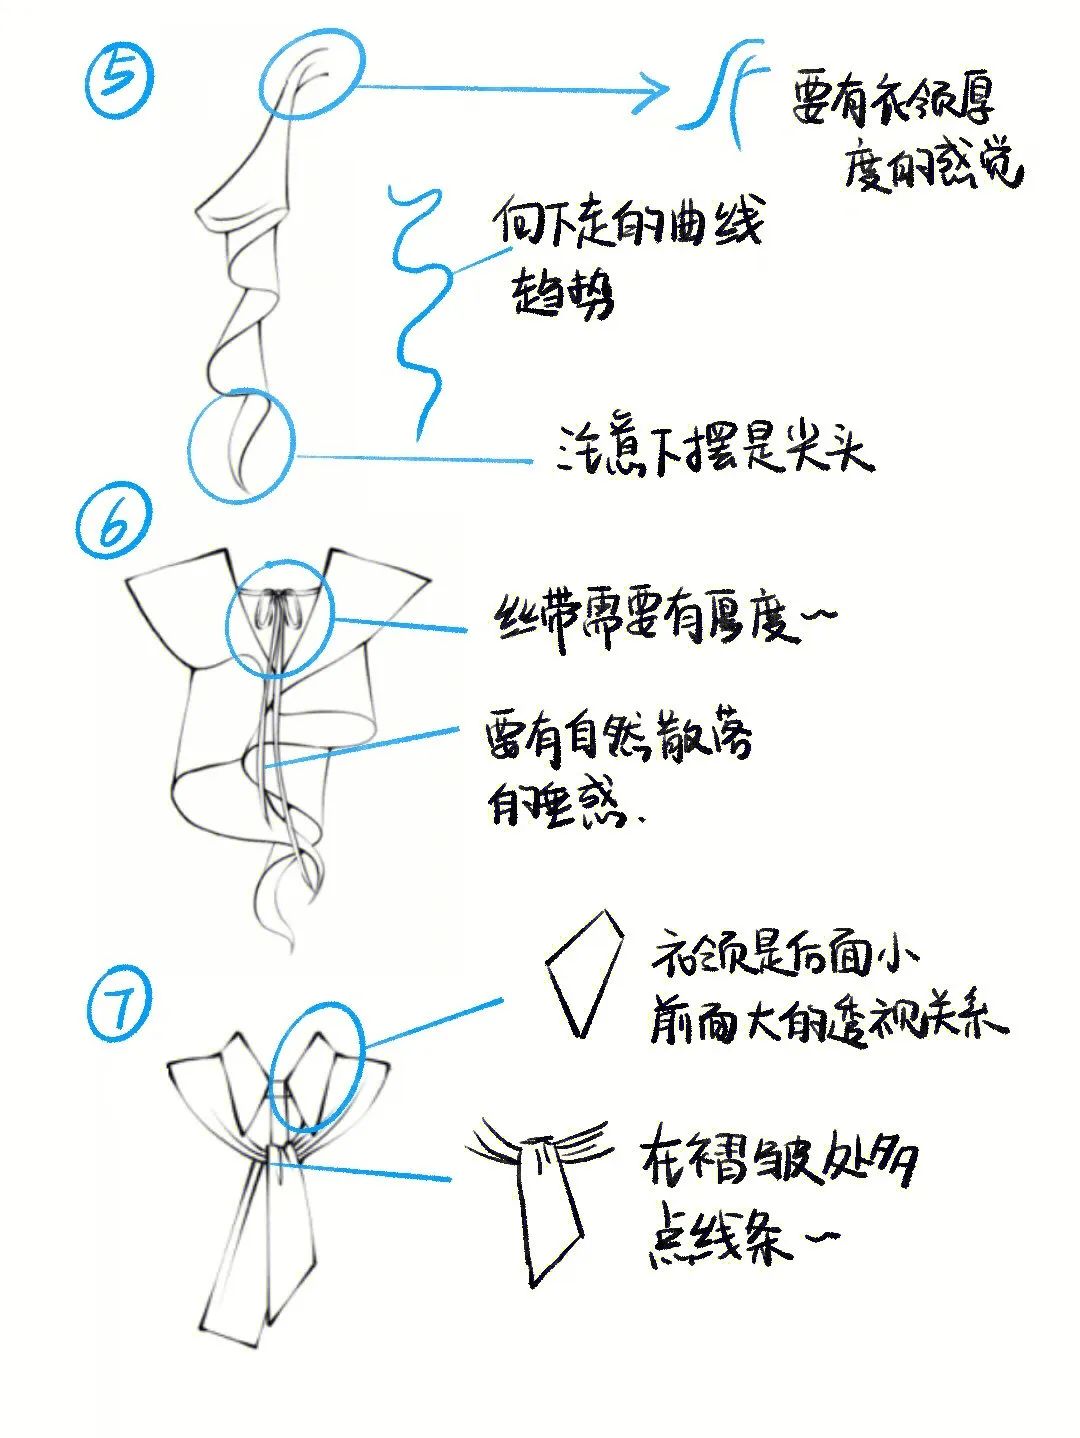 ⑤
要有衣领厚
度的感觉
向下走的曲线
趋势
注意下摆是尖头
⑥
丝带需要有厚度~
要有自然散落
的垂感.
⑦
衣领是后面小
前面大的透视关系
在褶皱处多
点线条~